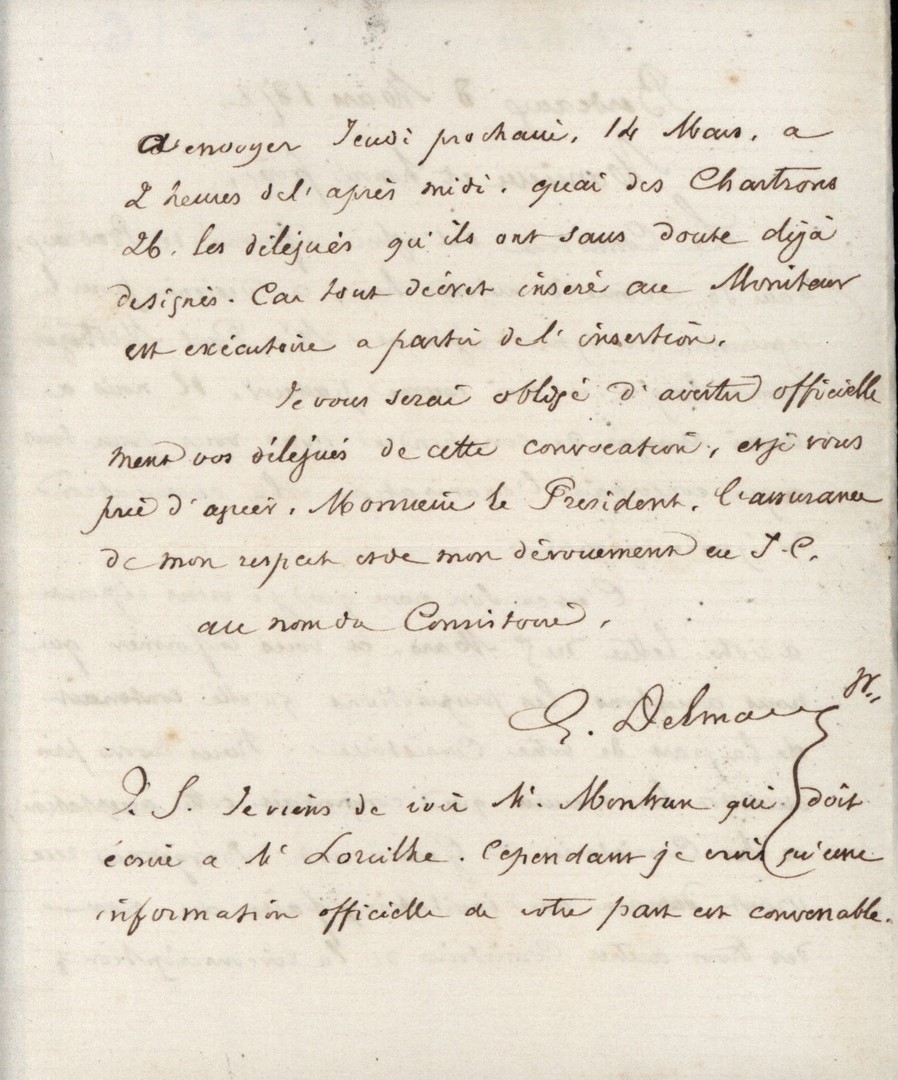 a envoyer Jeudi prochain, 14 Mars, a
2 heures de l'après midi, quai des Chartrons
26, les délégués qu'ils ont sans doute déjà
designés. Car tout décret inseré au Moniteur
est exécutoire a partir de l'insertion.
Je vous serai obligé d'avertir officielle
ment vos délégués de cette convocation, et je vous
prie d'agréer, Monsieur le President, l'assurance
de mon respect et de mon dévouement en J. C.
au nom du Consistoire,
E. Delmas
P. S. Je viens de voir Mr. Montrun qui doit
écrire a Mr Lorilhe. Cependant je crois qu'une
information officielle de votre part est convenable.